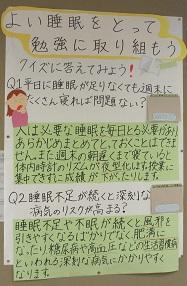 よい睡眠をとって
勉強に取り組もう
クイズに答えてみよう!
Q1平日に睡眠が足りなくても週末に
たくさん寝れば問題ない?
人は必要な睡眠を毎日とる必要があり
あらかじめまとめて、とっておくことはできま
せん。また週の朝遅くまで寝ていると
体内時計のリズムが夜型化、休み明け授業に
集中できずに成績が下がったりします。
Q2睡眠不足が続くと深刻な
病気のリスクが高まる?
睡眠不足や不眠が続くと風邪を
引きやすくなるばかりでなく、肥満に
なったり糖尿病や高血圧などの生活習慣病
といわれる深刻な病気にかかりやすく
なります。